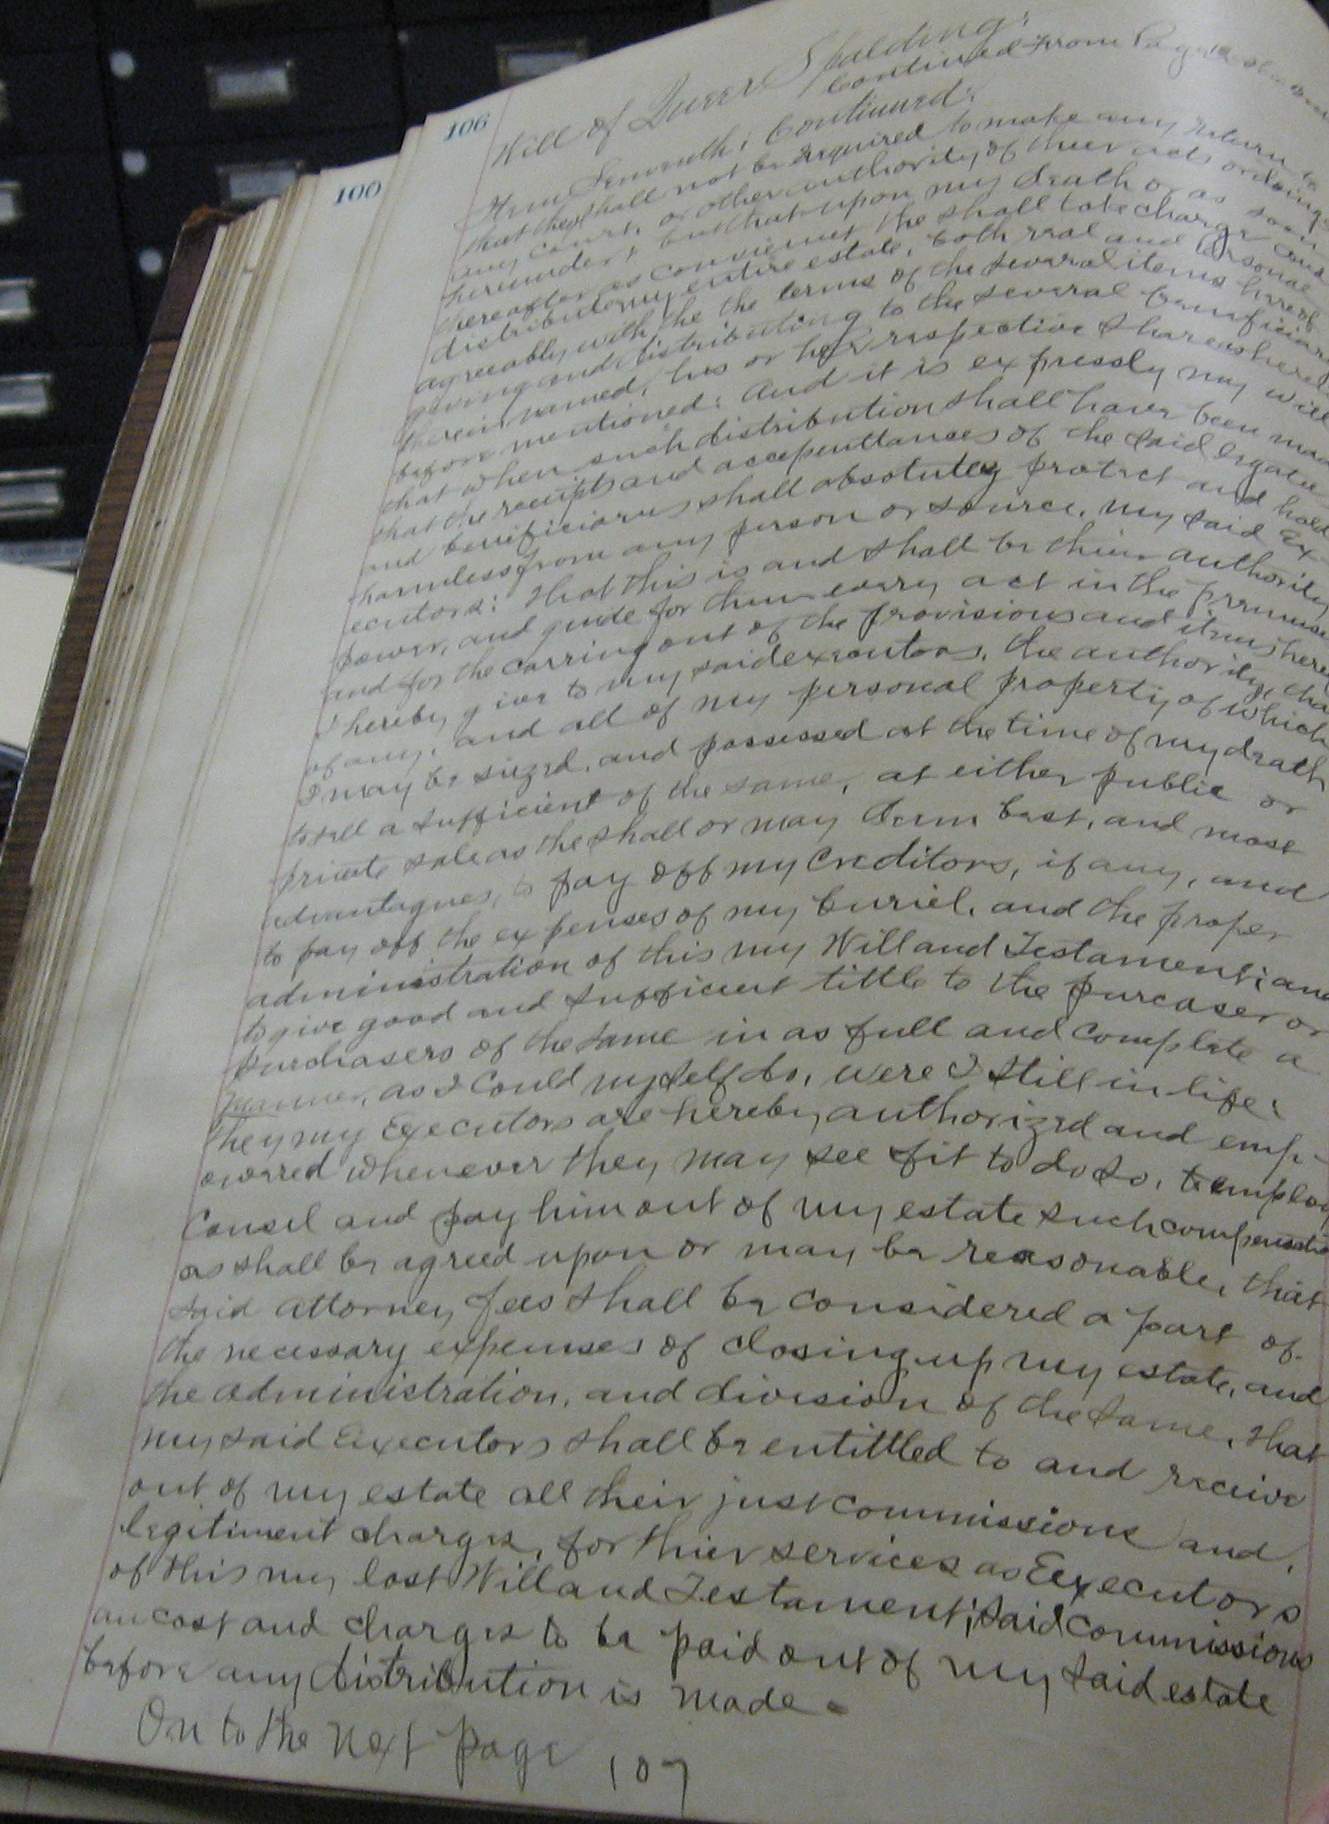 106
100
Will of Queen Spalding:
Continued From Page
Item Seventh; Continued:
that they shall not be required to make any return to
any court, or other authority of their acts or doings
hereunder, but that upon my death or as soon
thereafter as convienet the shall take charge and
distribute my entire estate, both real and personal
agreeably with the the terms of the several items hereof
giving and distributing to the several beneficiary
therein named, his or her respective shares herein
before mentioned: and it is expressly my will
that when such distribution shall have been made
that the receipts and acceputtances of the said legatee
and beneficiarus shall absolutey protect and hold
harmless from any person or source, my said Ex-
ecutors: that this is and shall be their authority
power, and guide for them every act in the premises
and for the carring out of the provisions and items here
I hereby give to my said executors, the authority, tha
of any, and all of my personal property of which
I may be siezed, and possessed at the time of my death
to sell a sufficient of the same, at either public or
private sale as the shall or may deem best, and most
advantagues, to pay off my Creditors, if any, and
to pay off the expenses of my buriel, and the proper
administration of this my Will and Testament; and
to give good and sufficient tittle to the purcaser or
purchasers of the same in as full and complete a
Manner, as I could myself do, were I still in life:
they my Executors are hereby authorized and emp-
owered whenever they may see fit to do so, to employ
Consel and pay him out of my estate such compensatio
as shall be agreed upon or may be reasonable, that
said attorney fees shall be considered a part of
the necessary expenses of closing up my estate, and
the administration, and division of the same, that
my said Executors shall be entittled to and receive
out of my estate all their just commissions and
legitiment charges, for thier services as Executors
of this my last Will and Testament; said Commissions
an cost and charges to be paid out of my said estate
before any distribution is made.
On to the next page 107